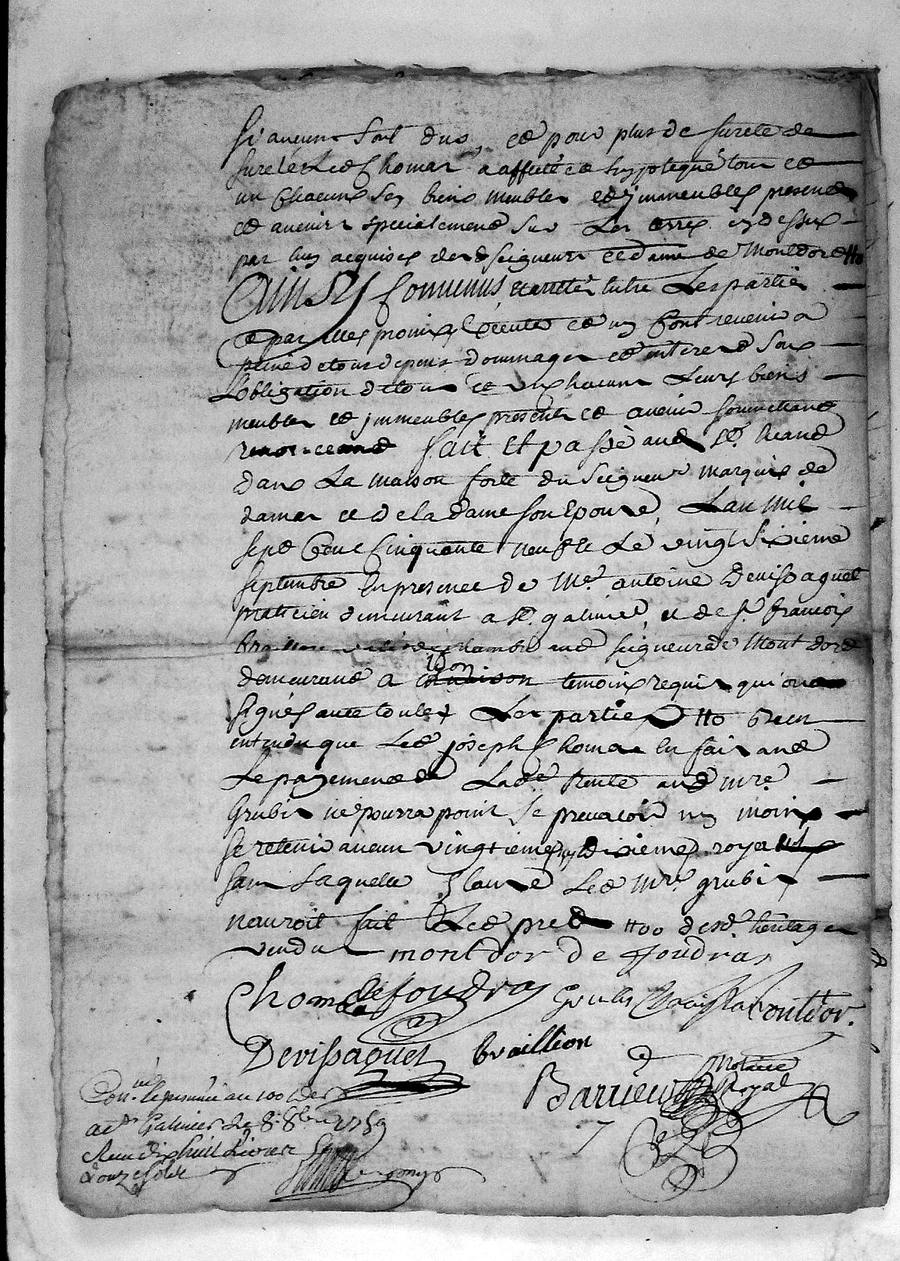 si aucuns sont dus, et pour plus de sureté de
sureté Led Chomar a affecté et hyptequé tous et
un chacuns ses biens meubles et jmmeubles presents
et avenir specialement sur Les terres cy dessus
par luy acquises desd seigneur et dame de Montdor tto
Ainsy Convenus, et arreté entre Les parties
et par elles promis Executer et ny Contrevenir a
peine de tous depens dommages et interest sous
L'obligation de tous et un chacuns Leurs biens
meubles et jmmeubles presents et avenir soumettant
renonceant fait et passé aud St. heand
dans La maison forte du seigneur marquis de
damas et de la dame son Epouse, L'an mil
sept Cent Cinquante neufve Le vingt sixieme
septembre En presence de Mre. antoine Devissaguet
praticien demeurant a St. galmier, et de Sr. francois
Braillion valet de chambre aud seigneur de Montdor
demeurant a temoins requis qui ont
signés avec toutes Les parties tto bien
entendu que Led joseph Chomar En faisant
Le payement de Lade. Rente aud mre.
Grubis ne pourra point se prevaloir ny moins
se retenir aucun vingtieme, ny dixieme, royaux
sans Laquelle Clause Led Mre. grubis
nauroit fait Led pret tto desd. heritages
vendus montdor de foudras
Chomar de foudras Grubis Montdor.
Devissaguet braillion
Barrieu Notaire Royal
Conlé. le present au
a St. Galmier Le 8. 8bre 1759
Receu dix huit Livres
douze sols